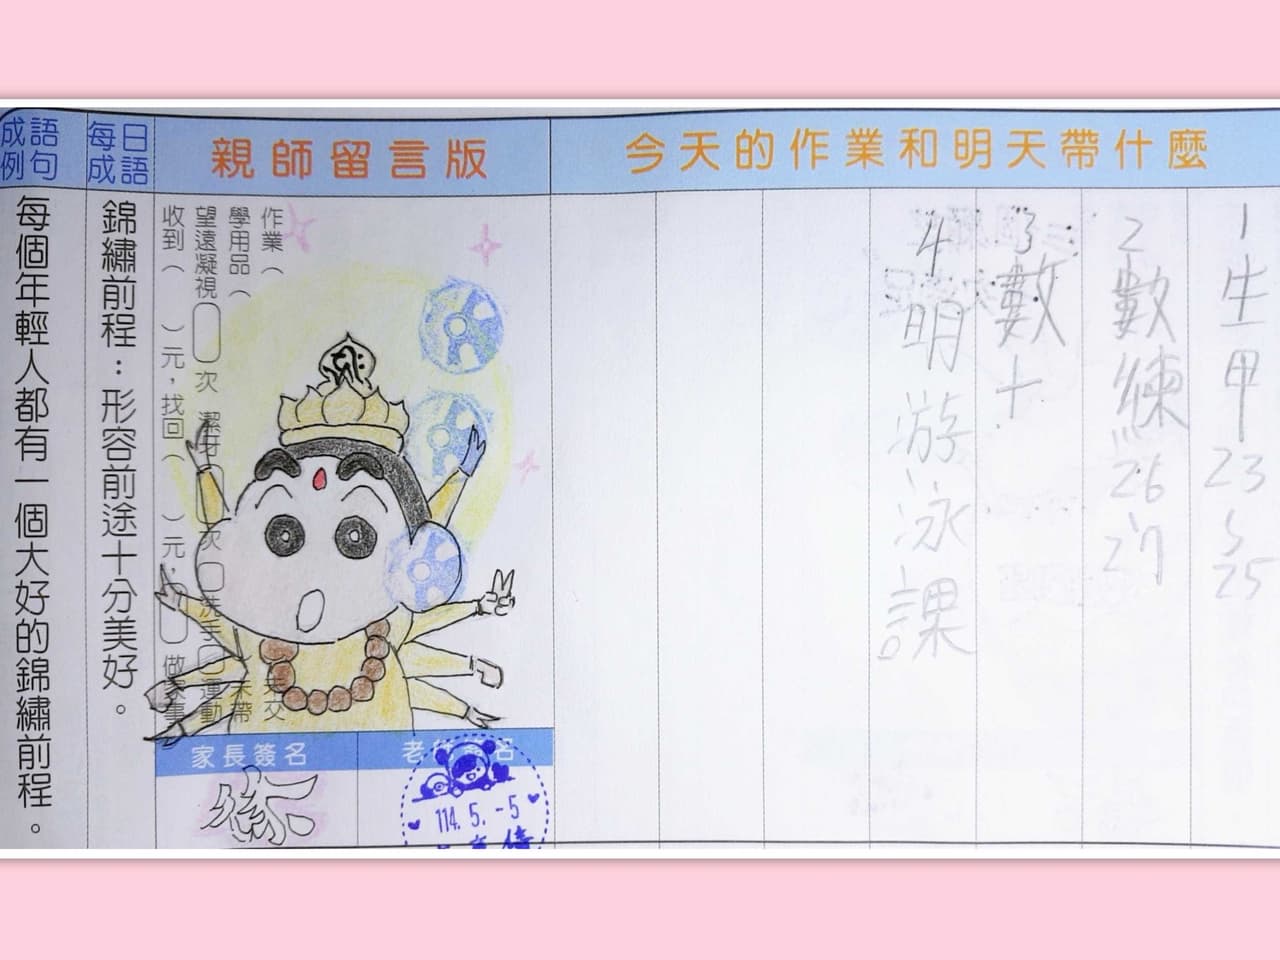 今天的作業和明天帶什麼
1生甲23
25
2數練26
27
3數十
4明游泳課。
親師留言版
作業（
未交
學用品（
未帶
望遠凝視 次 潔牙 次 洗手 運動
收到（ ）元，找回（ ）元， 做家事
家長簽名
徐
老 名
114. 5. -5
每日成語
錦繡前程：形容前途十分美好。
成語例句
每個年輕人都有一個大好的錦繡前程。